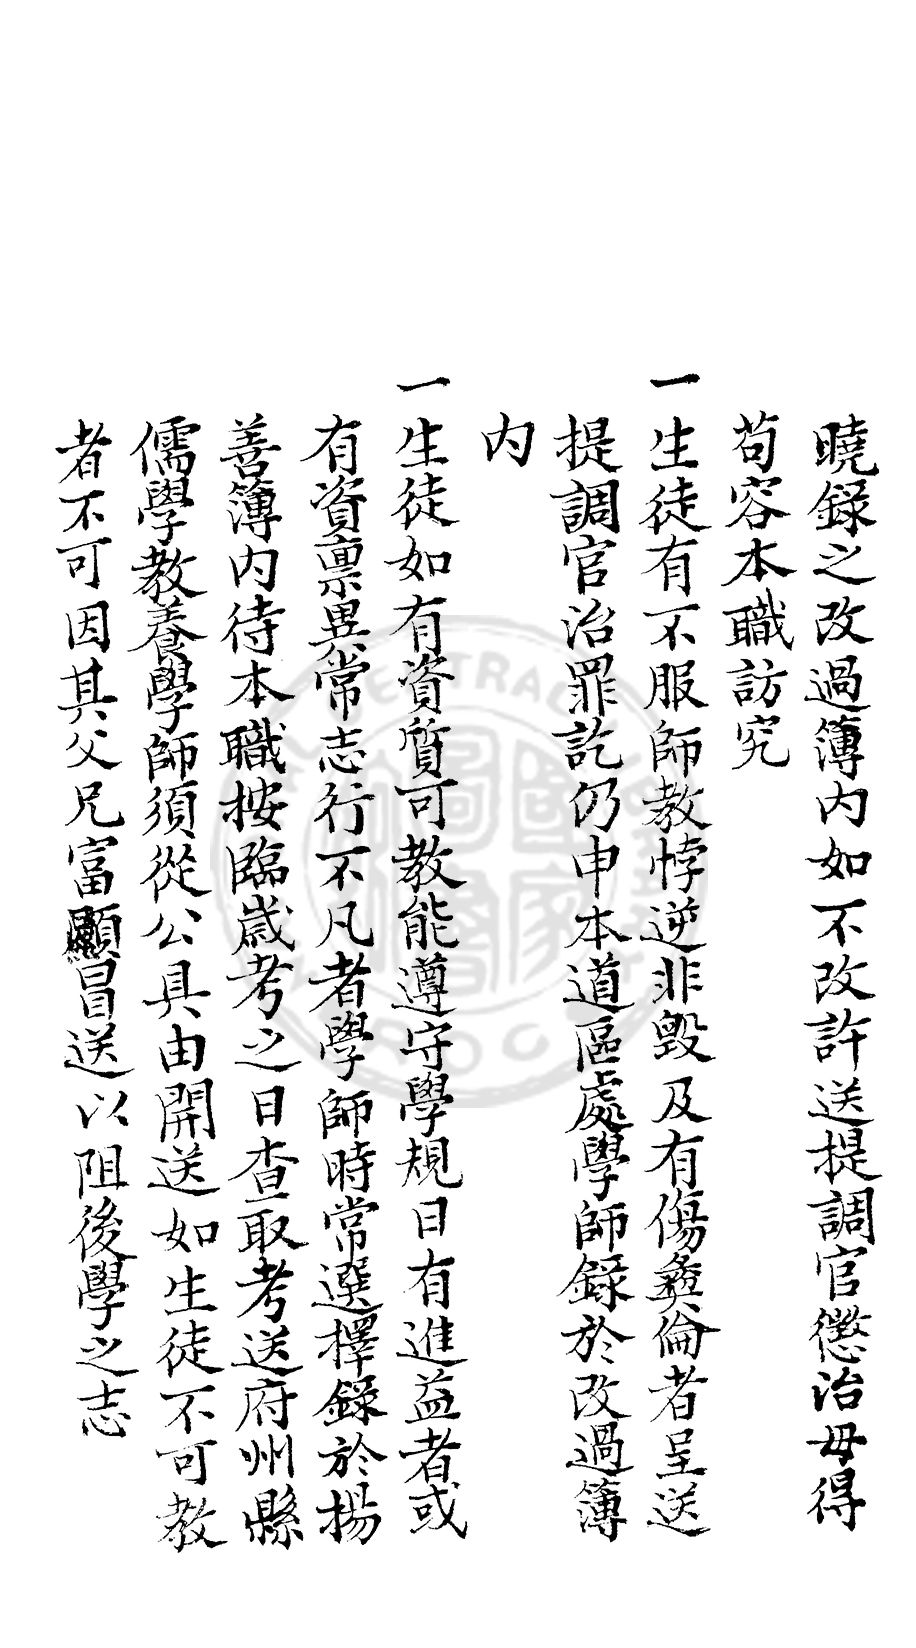 曉録之改過簿内如不改許送提調官懲治毋得
苟容本職訪究
一生徒有不服師教悖逆非毀及有傷彝倫者呈送
提調官治罪訖仍申本道區處學師録於改過簿
内
一生徒如有資質可教能遵守學規日有進益者或
有資禀異常志行不凡者學師時常選擇録於揚
善簿内待本職按臨歲考之日查取考送府州縣
儒學教養學師須從公具由開送如生徒不可教
者不可因其父兄富顯冒送以阻後學之志